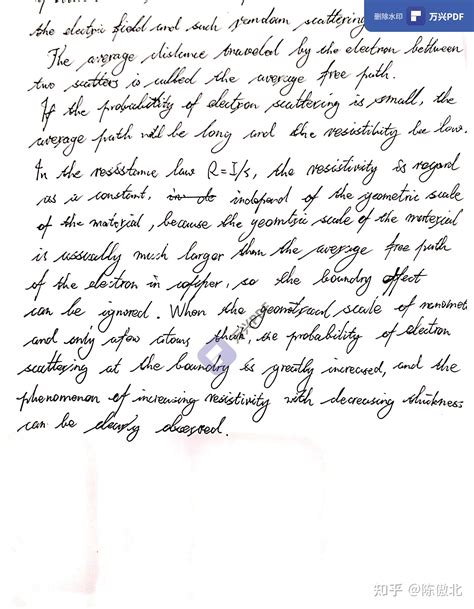 删除水印 万兴PDF
the electric field and such random scattering
The average distance traveled by the electron between
two scatters is called the average free path.
If the probability of electron scattering is small, the
average path will be long and the resistibility be low.
In the resistance law R=I/s, the resistivity is regard
as a constant, independ of the geometric scale
of the material, because the geomtric scale of the material
is ussually much larger than the average free path
of the electron in copper, so the boundry effect
can be ignored. When the scale of
and only afew atoms thick, the probability of electron
scattering at the boundry is greatly increased, and the
phenomenon of increasing resistivity with decreasing thickness
can be clearly observed.
知乎 @陈傲北